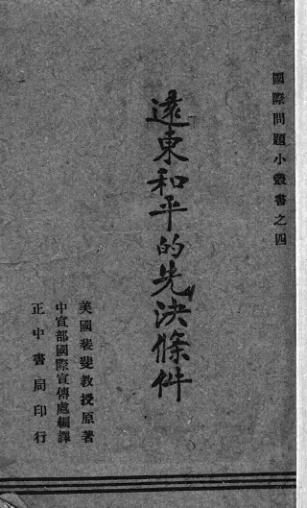 國際問題小叢書之四
遠東和平的先決條件
美國裴斐教授原著
中宣部國際宣傳處編譯
正中書局印行